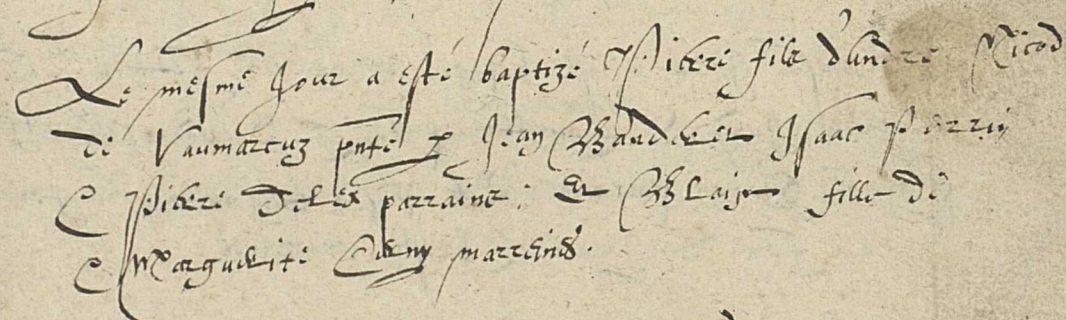 Le mesme Jour a esté baptizé Pierre filz d'Andre Nicod
de Vaumarcuz pnté p Jean Baudelet Isaac Perrin
& Pierre parrains; Et fille de
& Marguerite marreines.